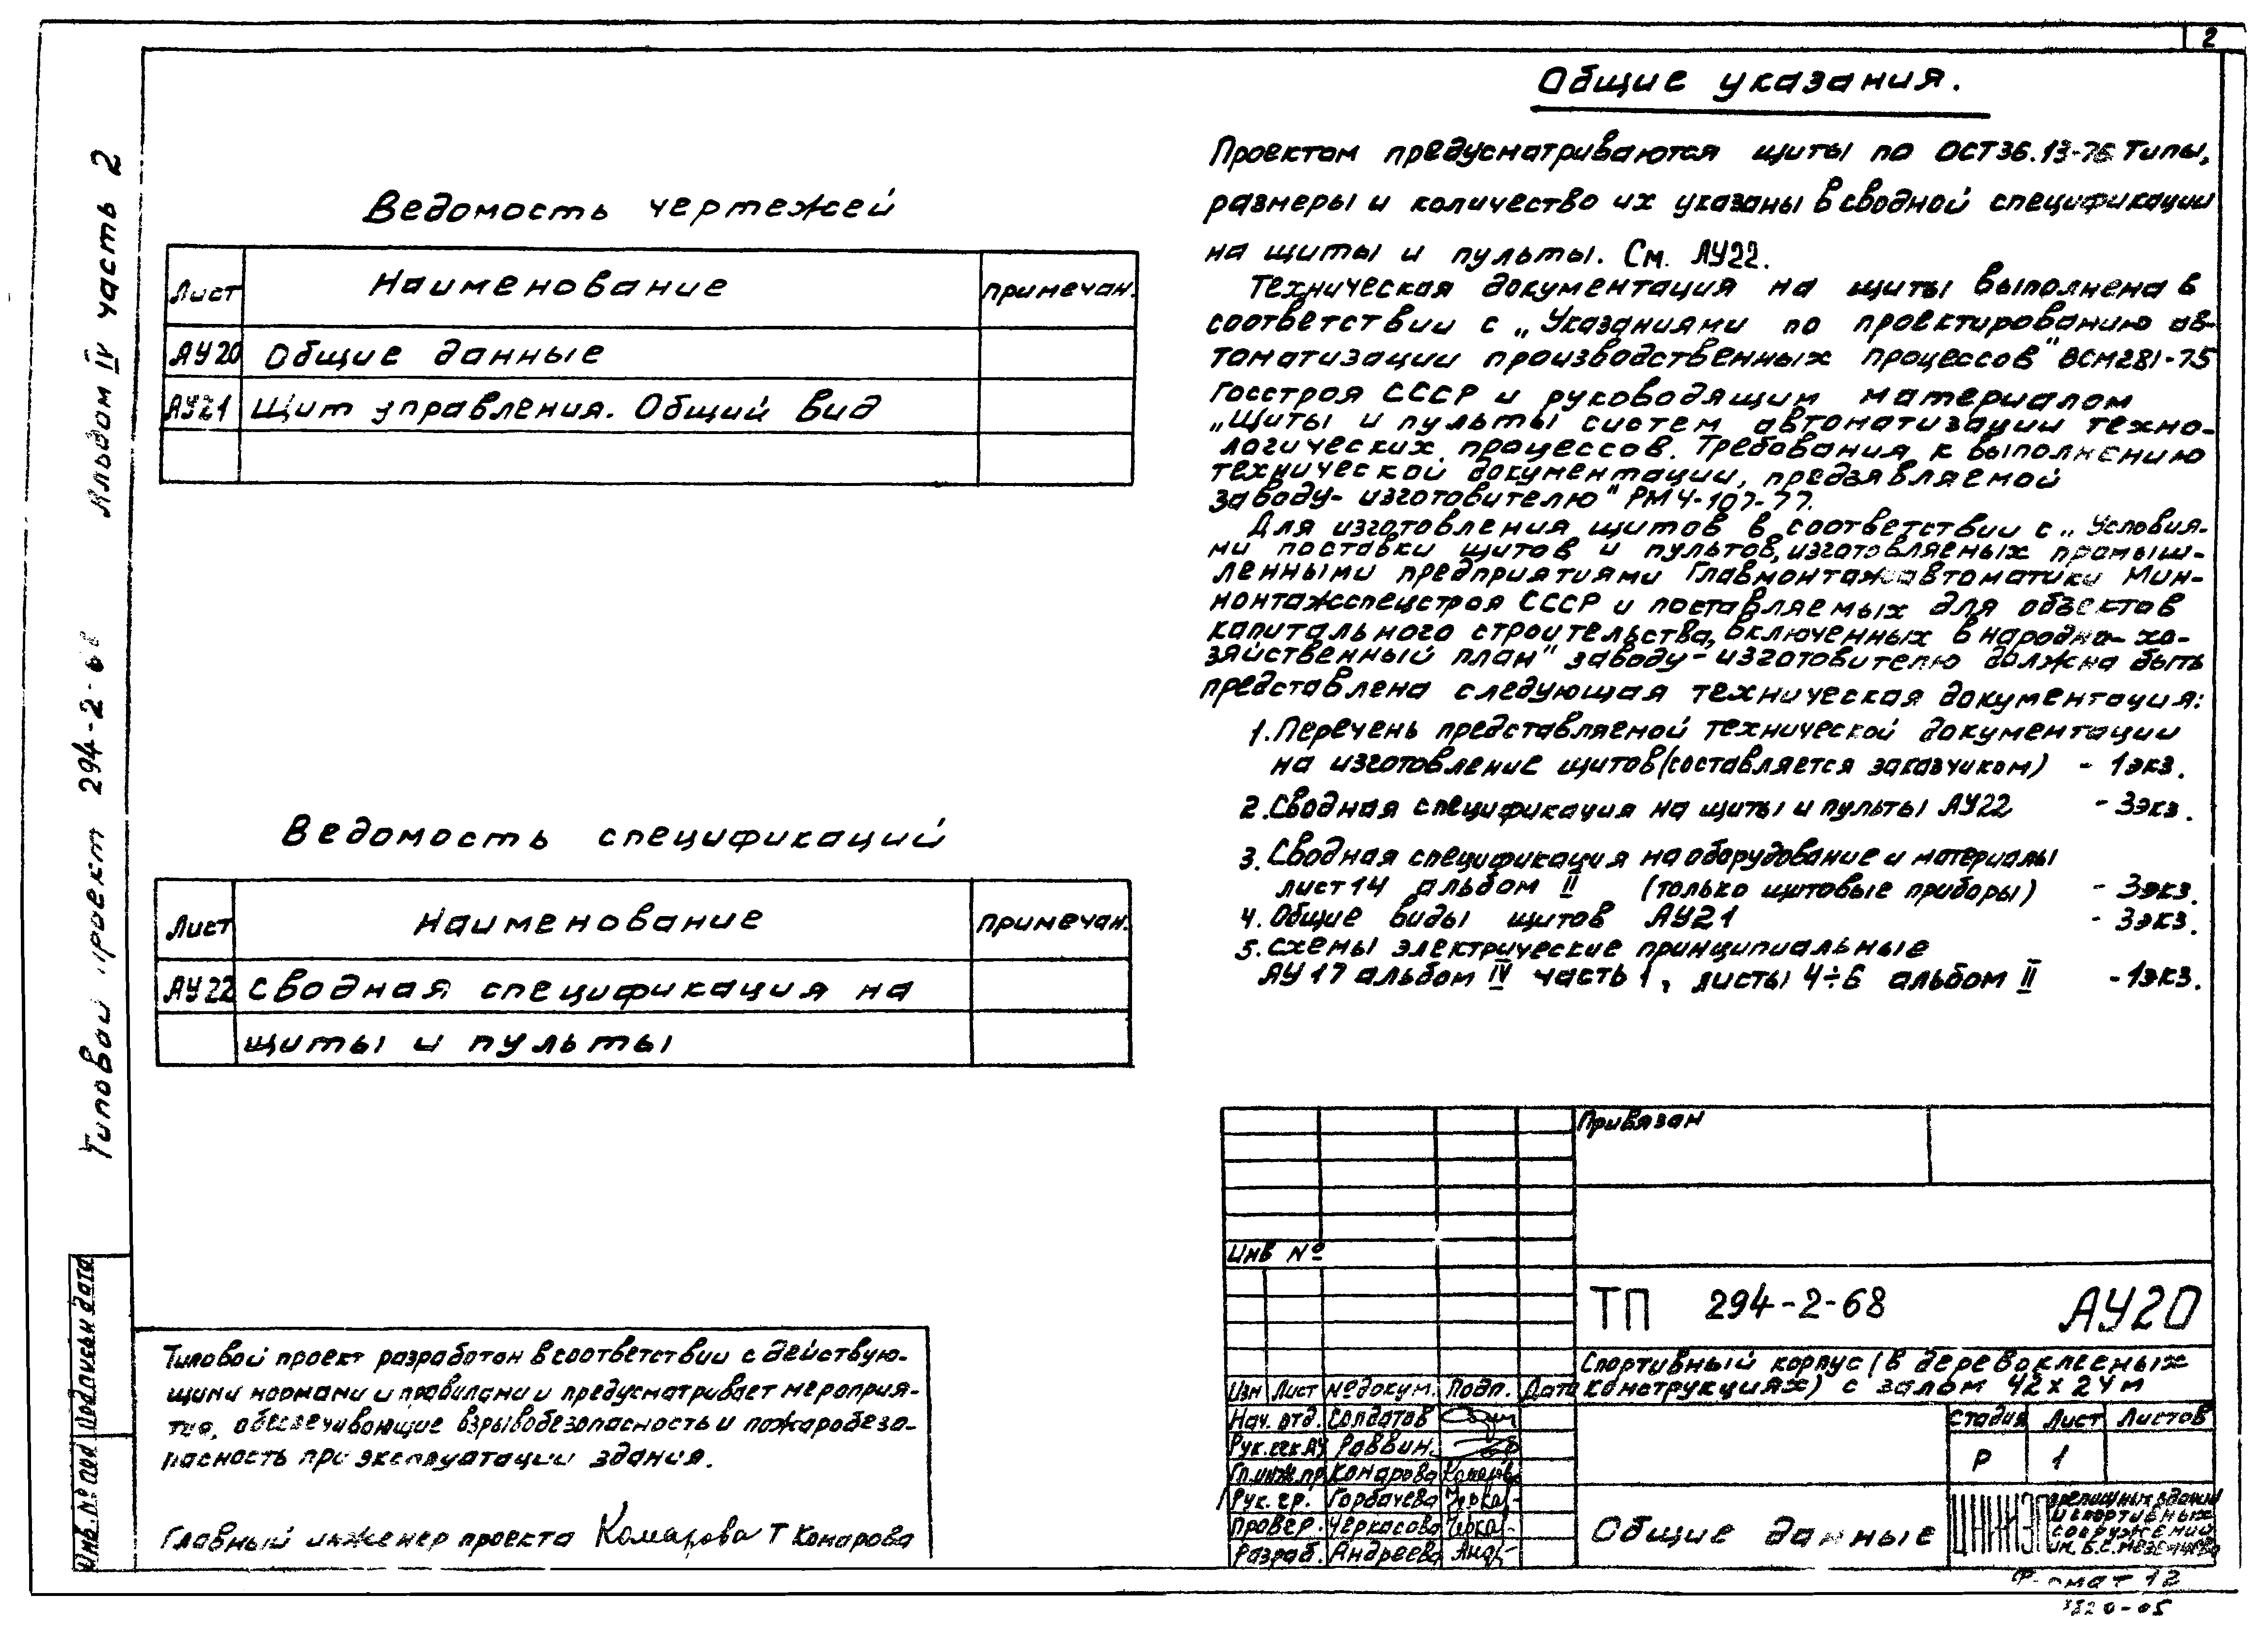 2
Альбом IV часть 2
Типовой проект 294-2-68
Ведомость чертежей
Лист Наименование примечан.
АУ20 Общие данные
АУ21 Щит управления. Общий вид
Ведомость спецификаций
Лист Наименование примечан.
АУ22 Сводная спецификация на
щиты и пульты
Общие указания.
Проектом предусматриваются щиты по ОСТ36.13-76 Типы,
размеры и количество их указаны в сводной спецификации
на щиты и пульты. См. АУ22.
Техническая документация на щиты выполнена в
соответствии с „Указаниями по проектированию ав-
томатизации производственных процессов" ВСН281-75
Госстроя СССР и руководящим материалом
„Щиты и пульты систем автоматизации техно-
логических процессов. Требования к выполнению
технической документации, предъявляемой
заводу-изготовителю" РМ4-107-77.
Для изготовления щитов в соответствии с „Условия-
ми поставки щитов и пультов, изготовляемых промыш-
ленными предприятиями Главмонтажавтоматики Мин-
монтажспецстроя СССР и поставляемых для объектов
капитального строительства, включенных в народно-хо-
зяйственный план" заводу-изготовителю должна быть
представлена следующая техническая документация:
1. Перечень представляемой технической документации
на изготовление щитов (составляется заказчиком) - 1экз.
2. Сводная спецификация на щиты и пульты АУ22 - 3экз.
3. Сводная спецификация на оборудование и материалы
лист 14 альбом II (только щитовые приборы) - 3экз.
4. Общие виды щитов АУ21 - 3экз.
5. Схемы электрические принципиальные
АУ17 альбом IV часть 1, листы 4÷6 альбом II - 1экз.
Типовой проект разработан в соответствии с действую-
щими нормами и правилами и предусматривает мероприя-
тия, обеспечивающие взрывобезопасность и пожаробезо-
пасность при эксплуатации здания.
Главный инженер проекта Комарова Т Комарова
Инв. № под Подпись и дата
Привязан
Инв №
ТП 294-2-68 АУ20
Спортивный корпус (в деревоклееных
конструкциях) с залом 42х24м
Изм Лист №докум. Подп. Дата
Нач. отд. Солдатов
Рук.сек АУ Раввин
Гл.инж.пр Комарова Комарова
Рук. гр. Горбачева
Провер. Черкасова
Разраб. Андреева
Стадия Лист Листов
Р 1
Общие данные
ЦНИИЭП зрелищных зданий
и спортивных
сооружений
им. Б.С. Мезенцева
Формат 12